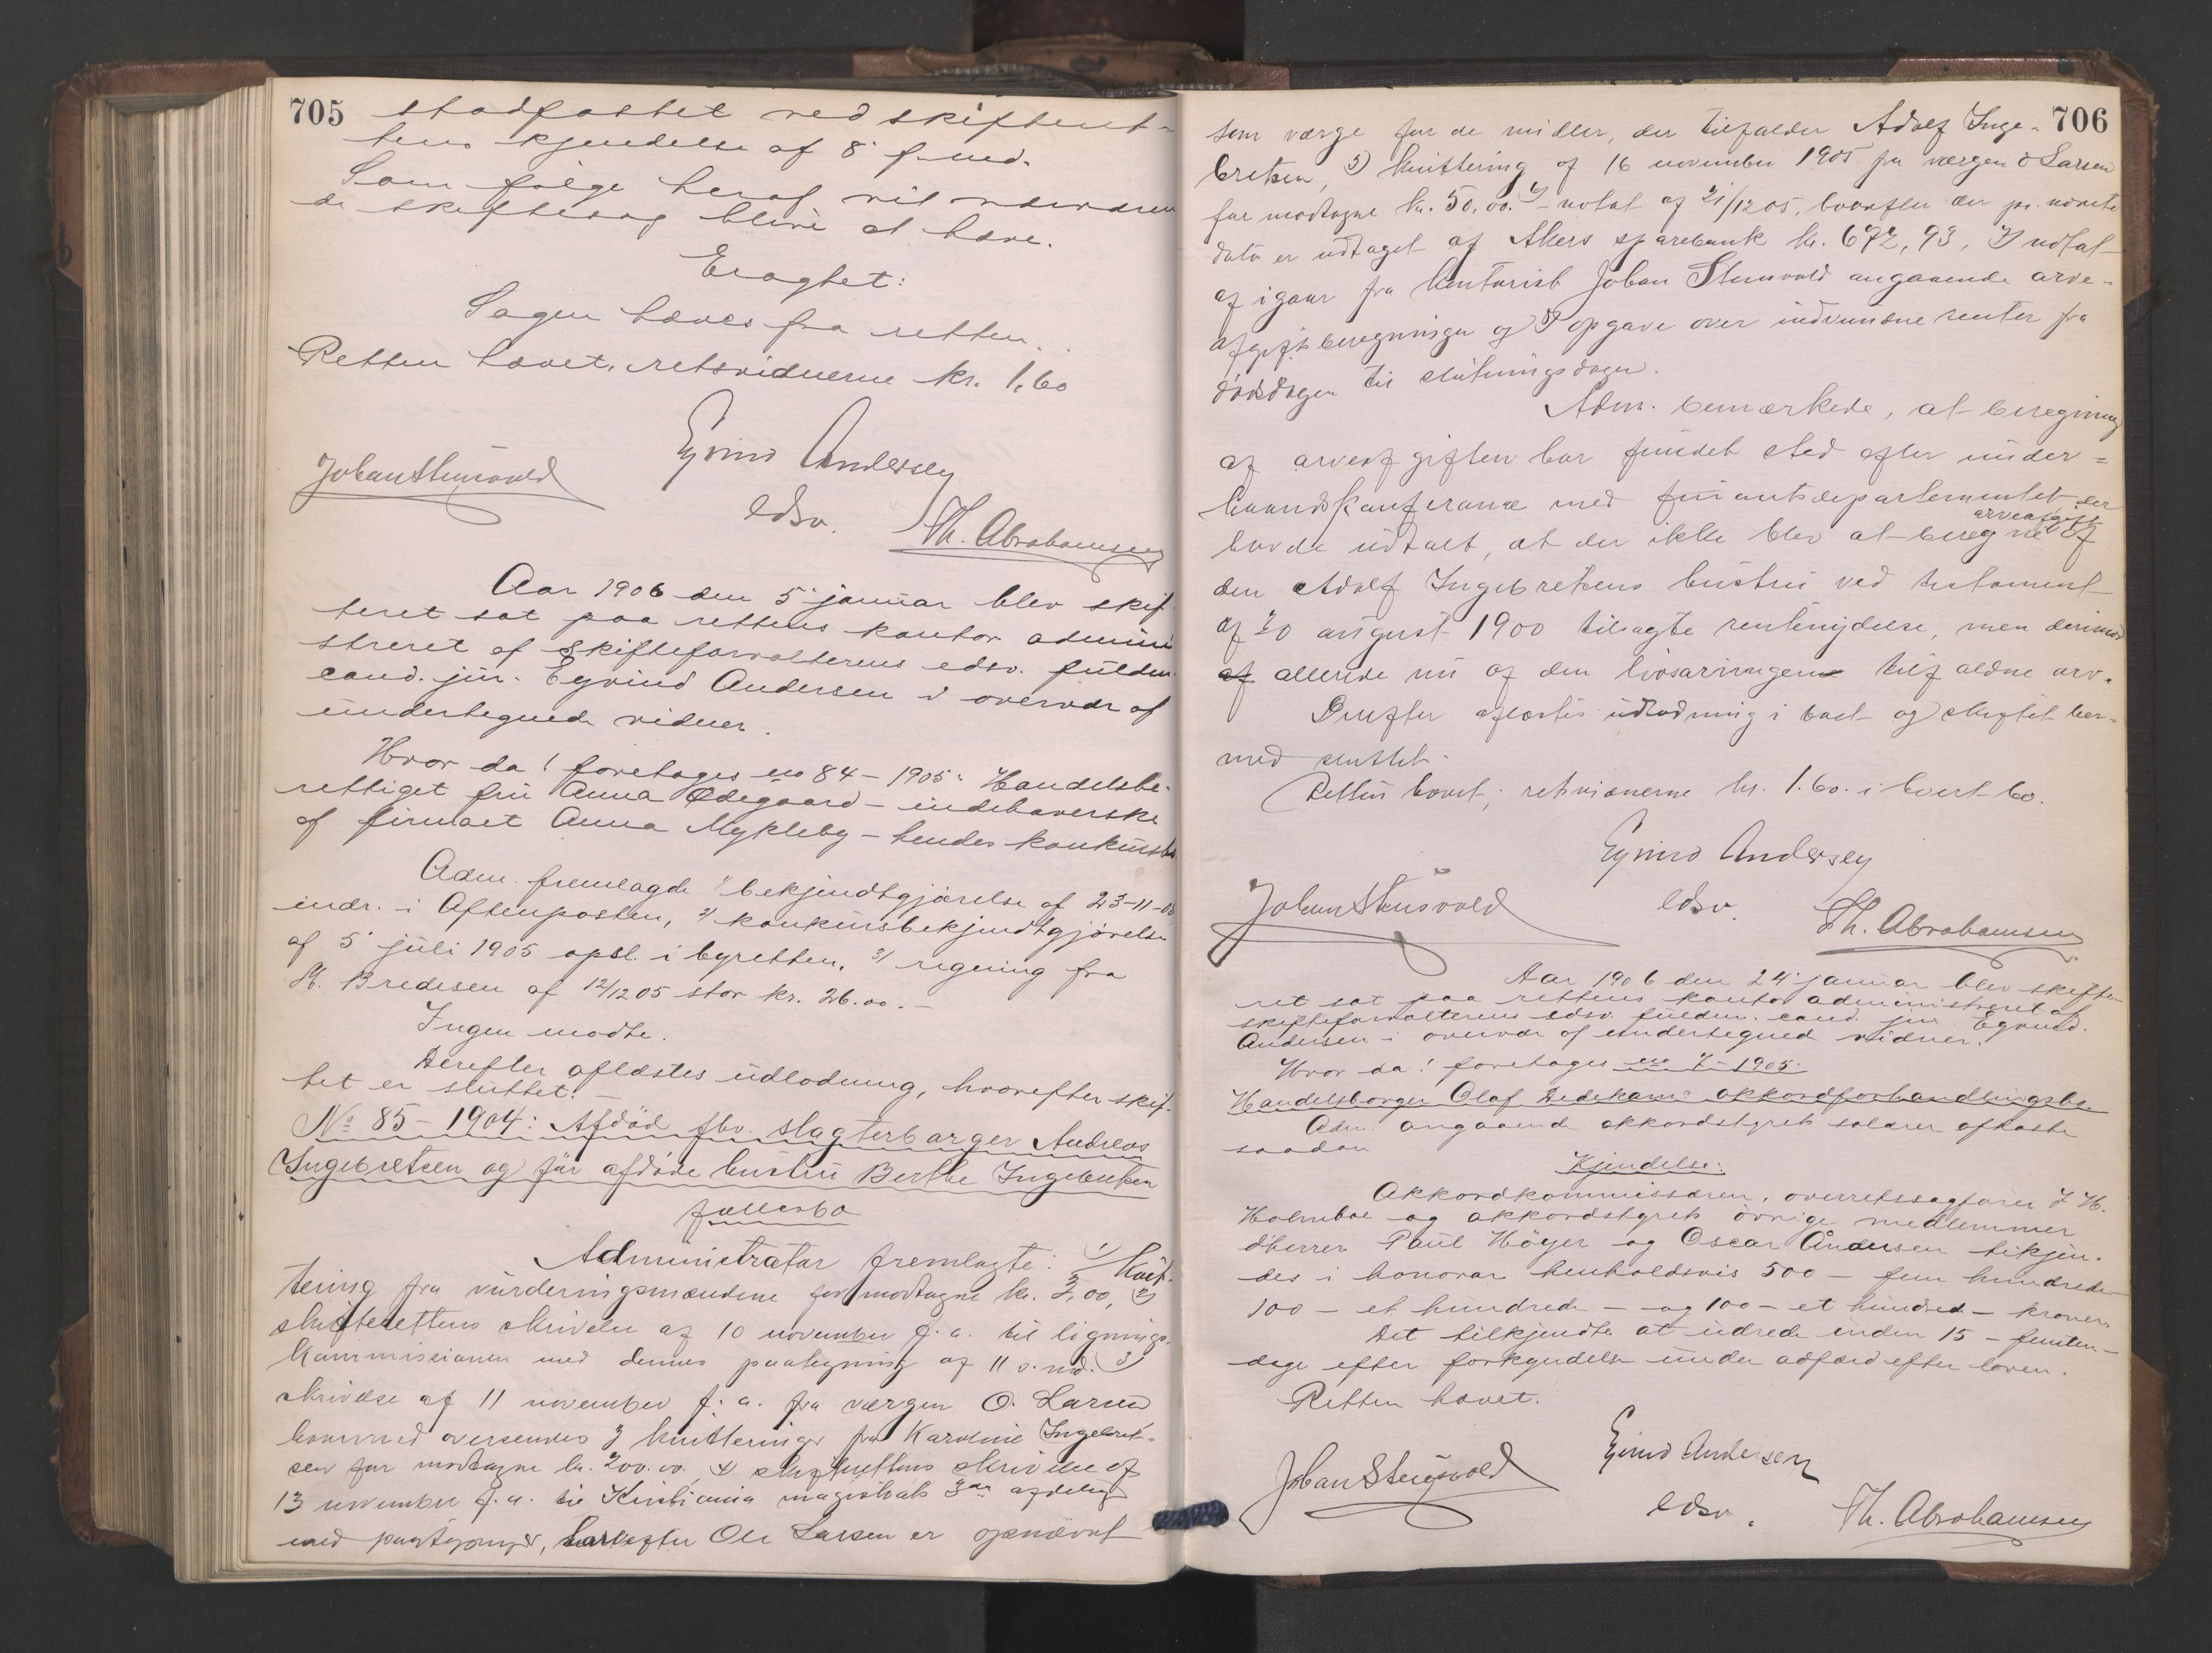 705
stadfæstet ved skifteret-
tens kjendelse af 8' f. md.
Som følge heraf vil nærværen
de skiftesag blive at hæve.
Eragtet:
Sagen hæves fra retten.
Retten hævet, retsvidnerne kr. 1,60
Eyvind Andersen
Johan Stensvold
edsv.
Th. Abrahamsen
Aar 1906 den 5' januar blev skif
teret sat paa rettens kontor admini
streret af skifteforvalterens edsv. fuldm.
cand. jur. Eyvind Andersen i overvær af
undertegnede vidner.
Hvor da! foretoges no 84 - 1905: Handelsbe-
rettiget fru Anna Ødegaard - indehaverske
af firmaet Anna Mykleby - hendes konkursbo
Adm. fremlagde 1/ bekjendtgjørelse af 23-11-05
indr. i Aftenposten, 2/ konkursbekjendtgjørelse
af 5' juli 1905 opsl. i byretten, 3/ regning fra
H. Bredesen af 12/12 05 stor kr. 26.00. -
Ingen mødte.
Derefter aflæstes udlodning, hvorefter skif-
tet er sluttet. -
No 85 - 1904: Afdød fhv. slagterborger Andreas
Ingebretsen og før afdøde hustru Berthe Ingebretsen
fællesbo
Administrator fremlagte: 1) Kvit-
tering fra vurderingsmændene for modtagne kr. 3,00, 2)
skifterettens skrivelse af 10 november f. a. til lignings-
kommissionen med dennes paategning af 11 s. md. 3)
skrivelse af 11 november f. a. fra værgen O. Larsen
hvorved oversendes 3 kvitteringer fra Karoline Ingebret-
sen for modtagne kr. 200.00, 4) skifterettens skrivelse af
13 november f. a. til Kristiania magistrats 3die afdeling
med paategninger, hvorefter Ole Larsen er opnævnt
706
som værge for de midler, der tilfalder Adolf Inge-
bretsen, 5) kvittering af 16 november 1905 fra værgen O Larsen
for modtagne kr. 50,00. 6) notat af 21/12 05, hvorefter der pr. nævnte
dato er udtaget af Akers sparebank kr. 672,93, 7) notat
af igaar fra kontorist Johan Stensvold angaaende arve-
afgiftsberegningen og 8) opgave over indvundne renter fra
dødsdagen til slutningsdagen.
Adm. bemærkede, at beregning
af arveafgiften har fundet sted efter under=
haandskonferance med finantsdepartementet der
havde udtalt, at der ikke blev at beregne arveafgift af
den Adolf Ingebretsens hustru ved testament
af 20 august 1900 tilsagte rentenydelse, men derimod
af allerede nu af den livsarvingerne tilfaldne arv.
Derefter aflæstes udlodning i boet og skiftet her-
med sluttet.
Retten hævet; retsvidnerne kr. 1.60. i hvert bo.
Eyvind Andersen
Johan Stensvold
edsv.
Th. Abrahamsen
Aar 1906 den 24' januar blev skifte
ret sat paa rettens kontor administreret af
skifteforvalterens edsv. fuldm. cand. jur Eyvind
Andersen i overvær af undertegnede vidner.
Hvor da! foretoges no 7 - 1905:
Handelsborger Olaf Dedekams akkordforhandlingsbo
Adm. angaaende akkordstyrets salærer afsagte
saadan
Kjendelse:
Akkordkommissæren, overretssagfører J H.
Holmboe og akkordstyrets øvrige medlemmer
dherrer Paul Høyer og Oscar Andersen tilkjen-
des i honorar henholdsvis 500 - fem hundrede
100 - et hundrede - og 100 - et hundred - kroner.
Det tilkjendte at udrede inden 15 - femten -
dage efter forkyndelse under adfærd efter loven.
Retten hævet.
Eyvind Andersen
Johan Stensvold
edsv.
Th. Abrahamsen